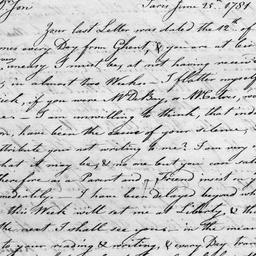 Son Paris June 25. 1781
Your last Letter was dated the 12th of
every Day from Ghent, & you are at
uneasy I must be, at not having receiv
in almost two Weeks. I flatter myself
sick, if you were, Mr De Bay, or
I am unwilling to think, that
n, have been the cause of your silence,
ttribute you not writing to me? I am very
what it may be, & no one but you can
therefore as a Parent and a Friend insist on y
mediately. I have been delayed beyond wh
this Week will set me at Liberty, & th
the next I shall see you. in the mean
to your reading & writing, & every Day